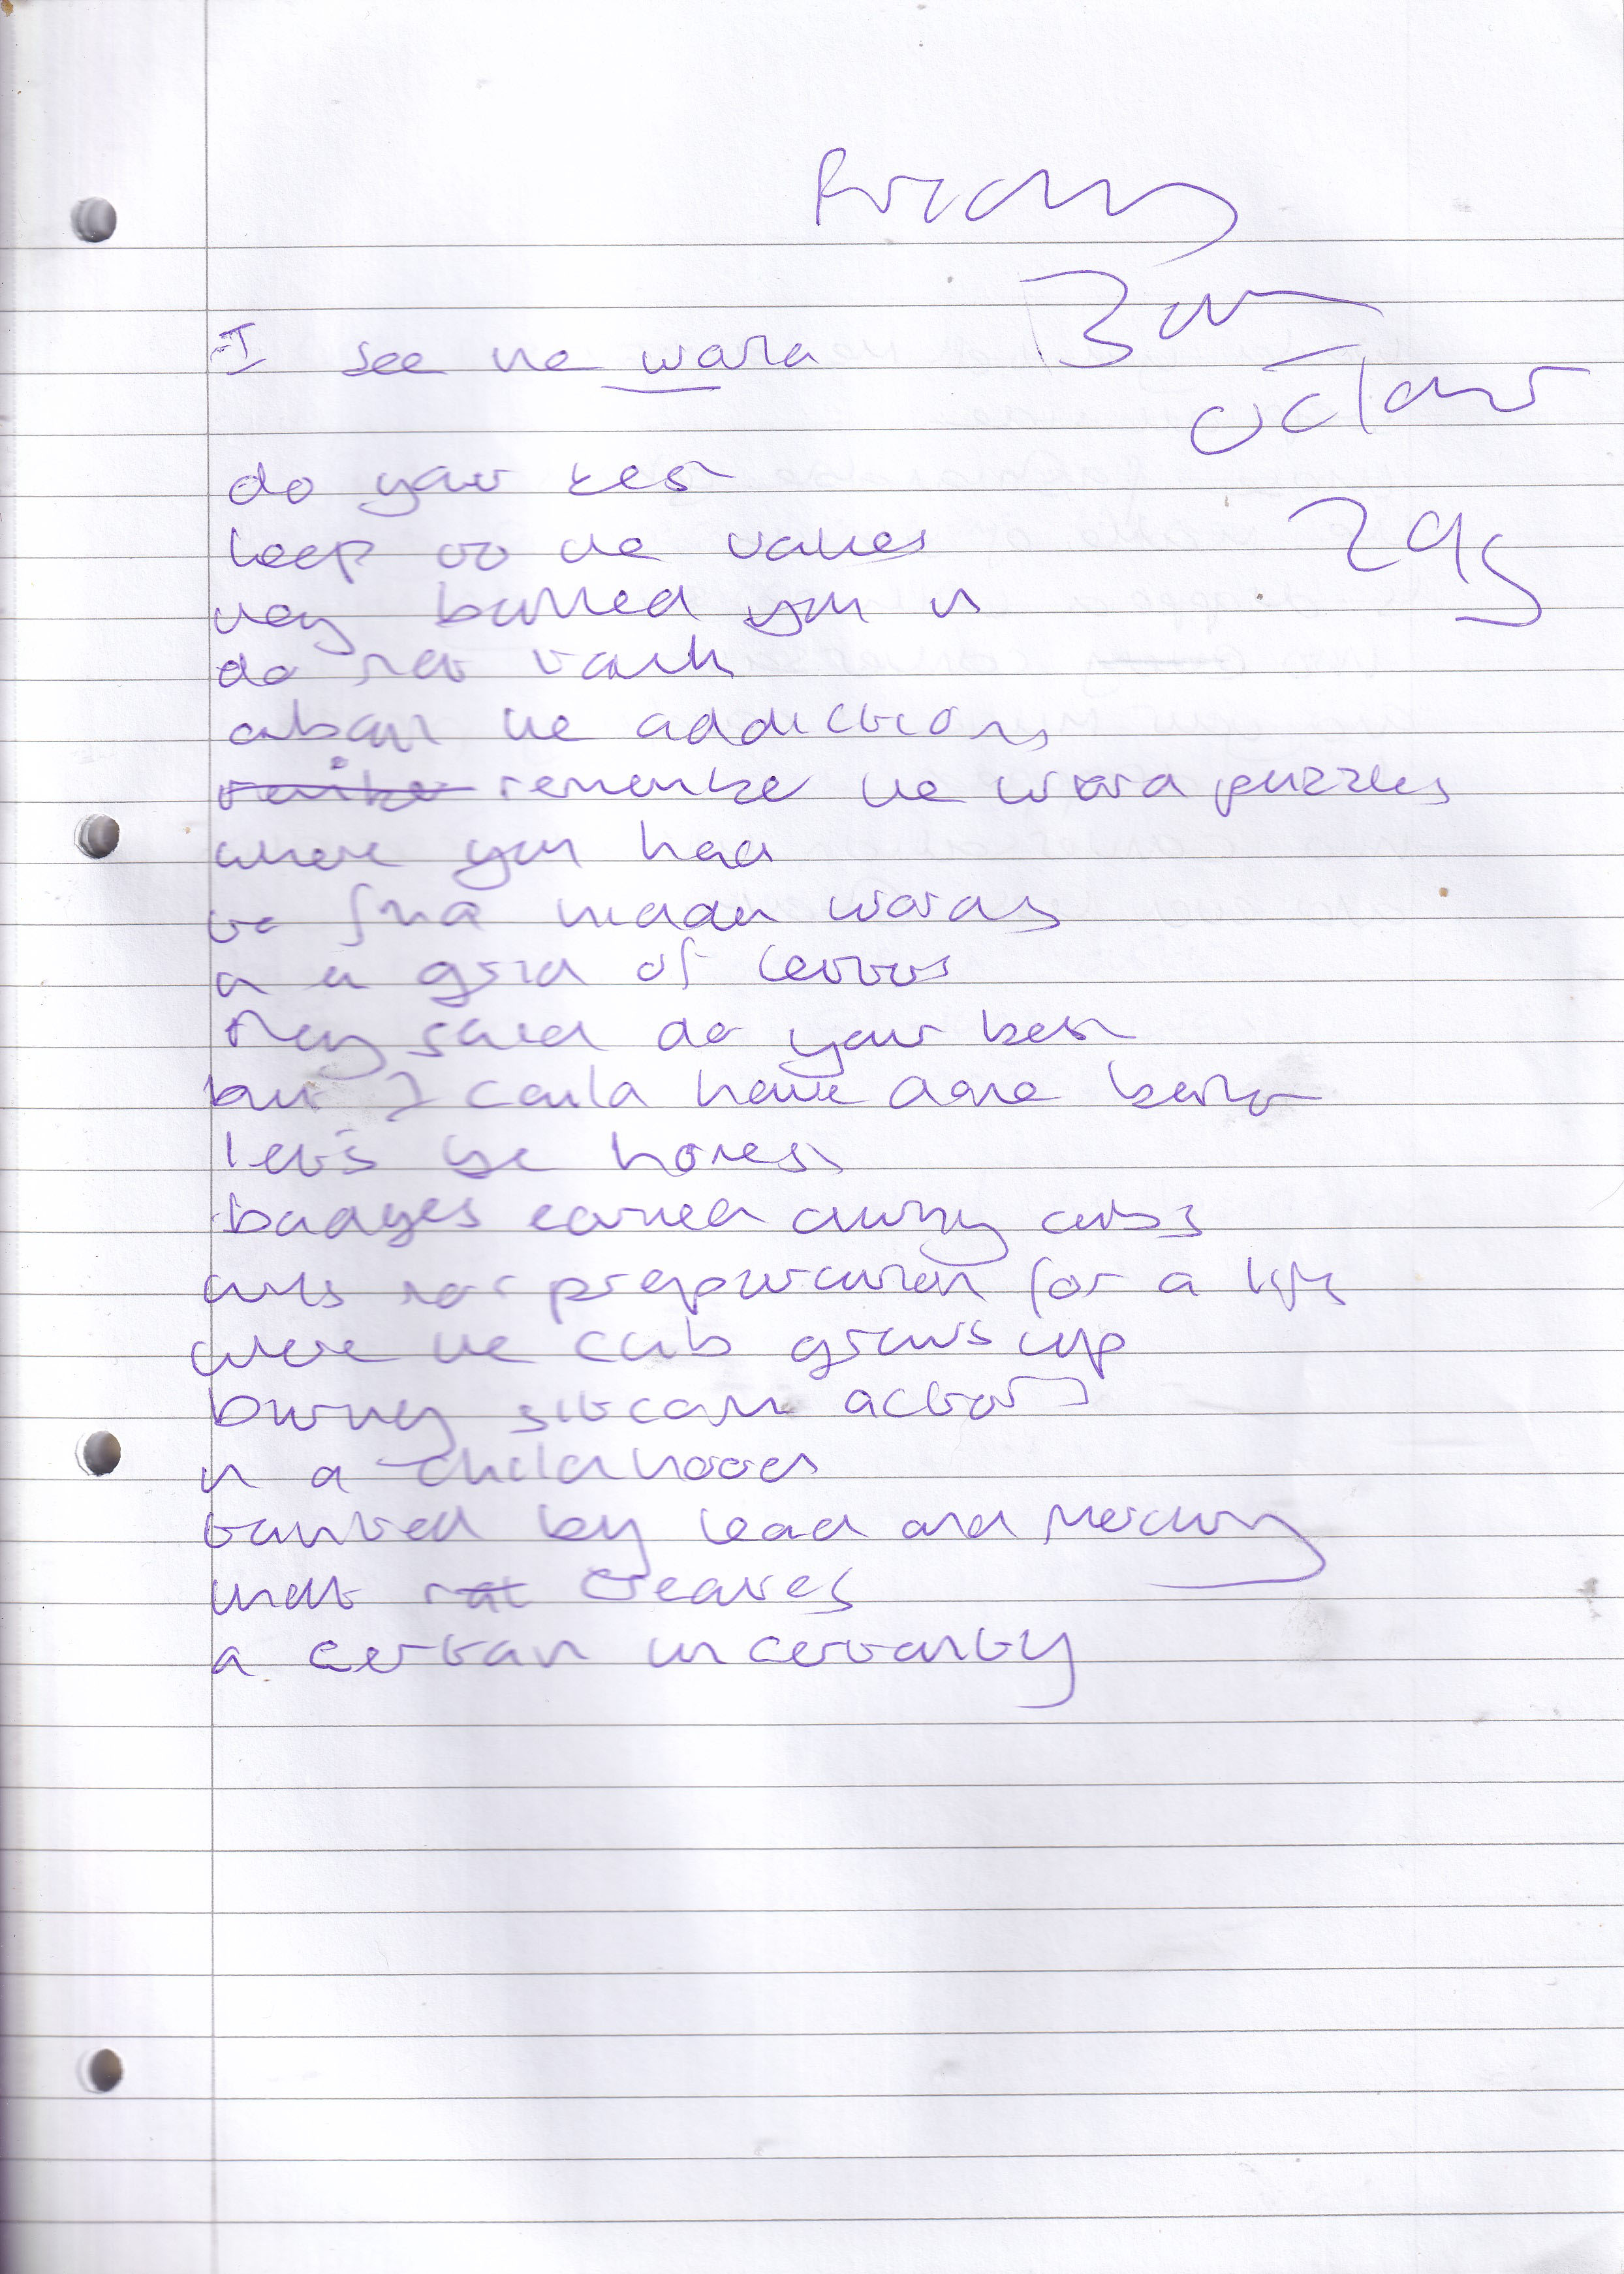 Friday
13th
October
I see the word
do your best
keep to the values
they burned you in
do not talk
about the addictions
remember the word puzzles
where you had
to find hidden words
in a grid of letters
they said do your best
but I could have done better
let's be honest
badges earned during cubs
was not preparation for a life
where the cub grows up
burying sitcom actors
in a childhood
tainted by lead and mercury
that creates
a certain uncertainty